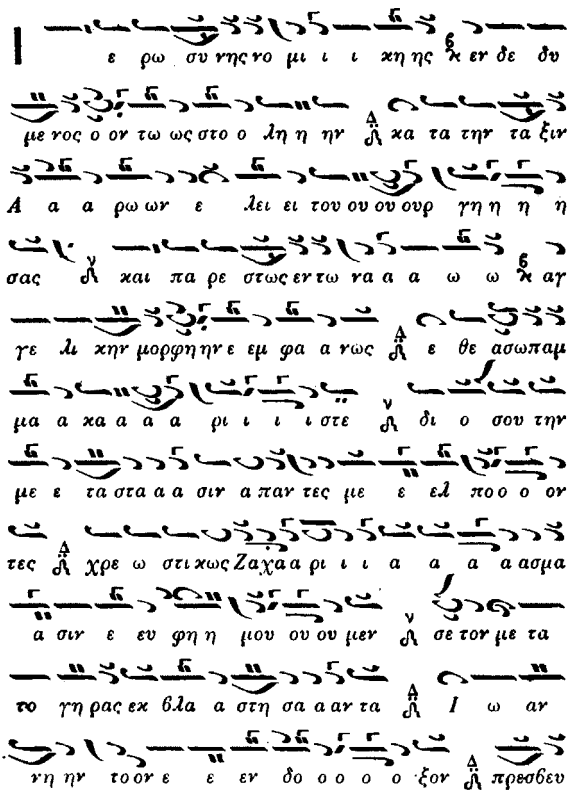 Ι ε ρω συ νης νο μι ι ι κη ης εν δε δυ
με νος ο ον τω ως στο ο λη η ην κα τα την τα ξιν
Α α α ρω ων ε λει ει του ου ου ουρ γη η η η
σας και πα ρε στως εν τω να α α ω ω αγ
γε λι κην μορφη ην ε εμ φα α νως ε θε ασωπαμ
μα α κα α α α ρι ι ι ι στε δι ο σου την
με ε τα στα α α σιν α παν τες με ε ελ πο ο ο ον
τες χρε ω στι κως Ζα χα α ρι ι ι α α α α ασμα
α σιν ε ευ φη η μου ου ου μεν σε τον με τα
το γη ρας εκ βλα α στη σα α αν τα Ι ω αν
νη ην το ον ε ε εν δο ο ο ο ο ξον πρεσβευ